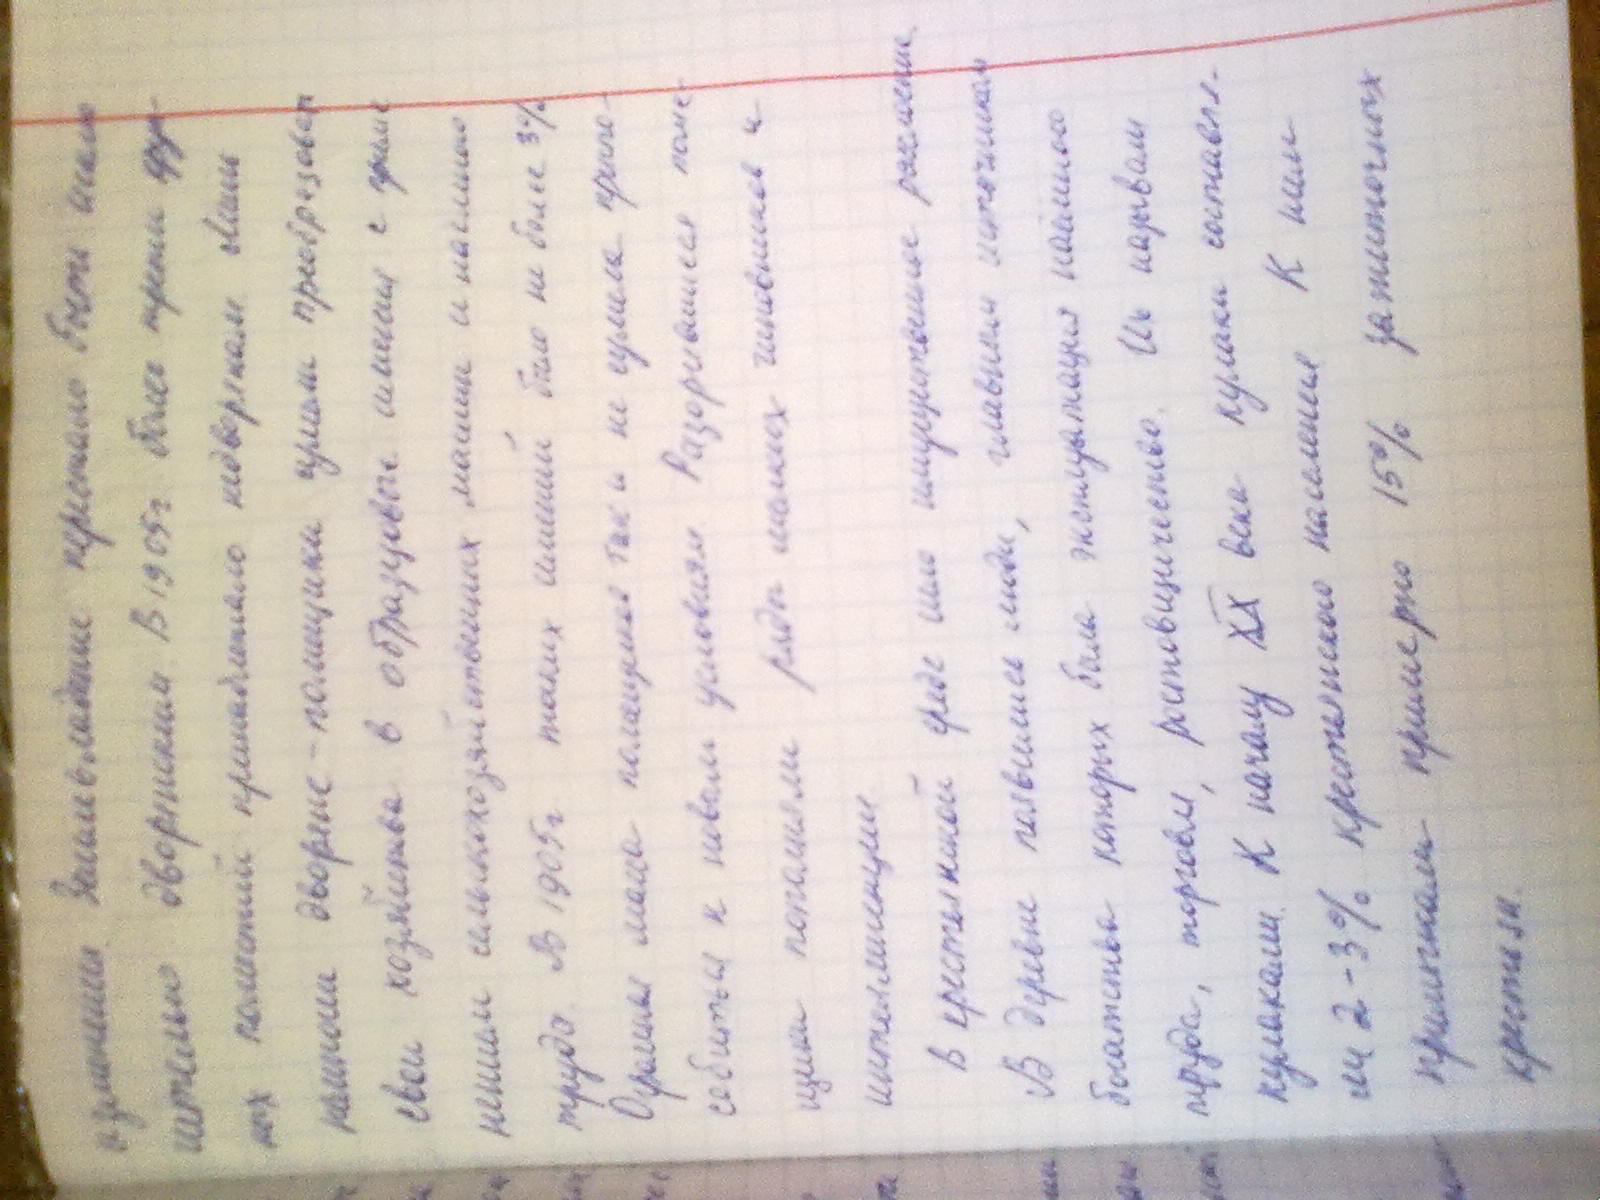 Землевладение перестало быть исклю-
чительно дворянским. В 1905г. более трети круп-
ных поместий принадлежало недворянам. Лишь
немногие дворяне-помещики сумели преобразовать
свои хозяйства в образцовые имения с приме-
нением сельскохозяйственных машин и наёмного
труда. В 1905г таких имений было не более 3%
Основная масса помещиков так и не сумела приспо-
собиться к новым условиям. Разорившиеся поме-
щики пополняли ряды мелких чиновников и
интеллигенции.
В крестьянской среде шло имущественное расслоение.
В деревне появились люди, главным источником
богатства которых была эксплуатация наёмного
труда, торговля, ростовщичество. Их называли
кулаками. К началу XX века кулаки составля-
ли 2-3% крестьянского населения К ним
примыкали примерно 15% зажиточных
крестьян.